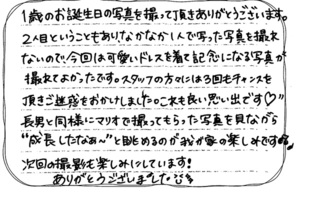 1歳のお誕生日の写真を撮って頂きありがとうございます。
2人目ということもありなかなか1人で写った写真を撮れ
ないので今回は可愛いドレスを着て記念になる写真が
撮れてよかったです。スタッフの方々には3回もチャンスを
頂きご迷惑をおかけしました。これも良い思い出です♡"
長男と同様にマリオで撮ってもらった写真を見ながら
"成長したなぁ〜"と眺めるのが我が家の楽しみです
次回の撮影も楽しみにしています!
ありがとうございました